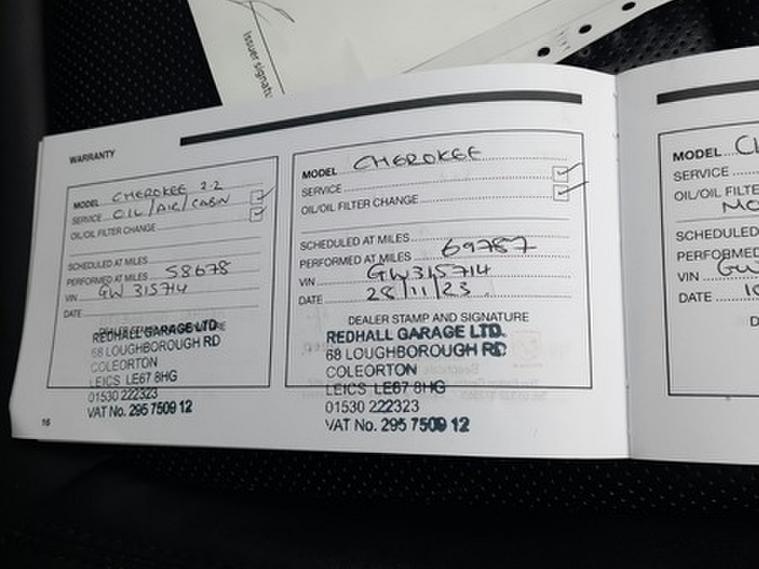 Issuer signatu
WARRANTY
MODEL CHEROKEE 2.2
SERVICE OIL/AIR/CABIN
OIL/OIL FILTER CHANGE
SCHEDULED AT MILES
PERFORMED AT MILES 58678
VIN GW 315714
DATE
REDHALL GARAGE LTD.
68 LOUGHBOROUGH RD
COLEORTON
LEICS LE67 8HG
01530 222323
VAT No. 295 7509 12
16
MODEL CHEROKEE
SERVICE
OIL/OIL FILTER CHANGE
SCHEDULED AT MILES
PERFORMED AT MILES 69787
VIN GW315714
DATE 28/11/23
DEALER STAMP AND SIGNATURE
REDHALL GARAGE LTD.
68 LOUGHBOROUGH RD
COLEORTON
LEICS LE67 8HG
01530 222323
VAT No. 295 7509 12
MODEL
SERVICE
OIL/OIL FILTE
SCHEDULED
PERFORMED
VIN
DATE